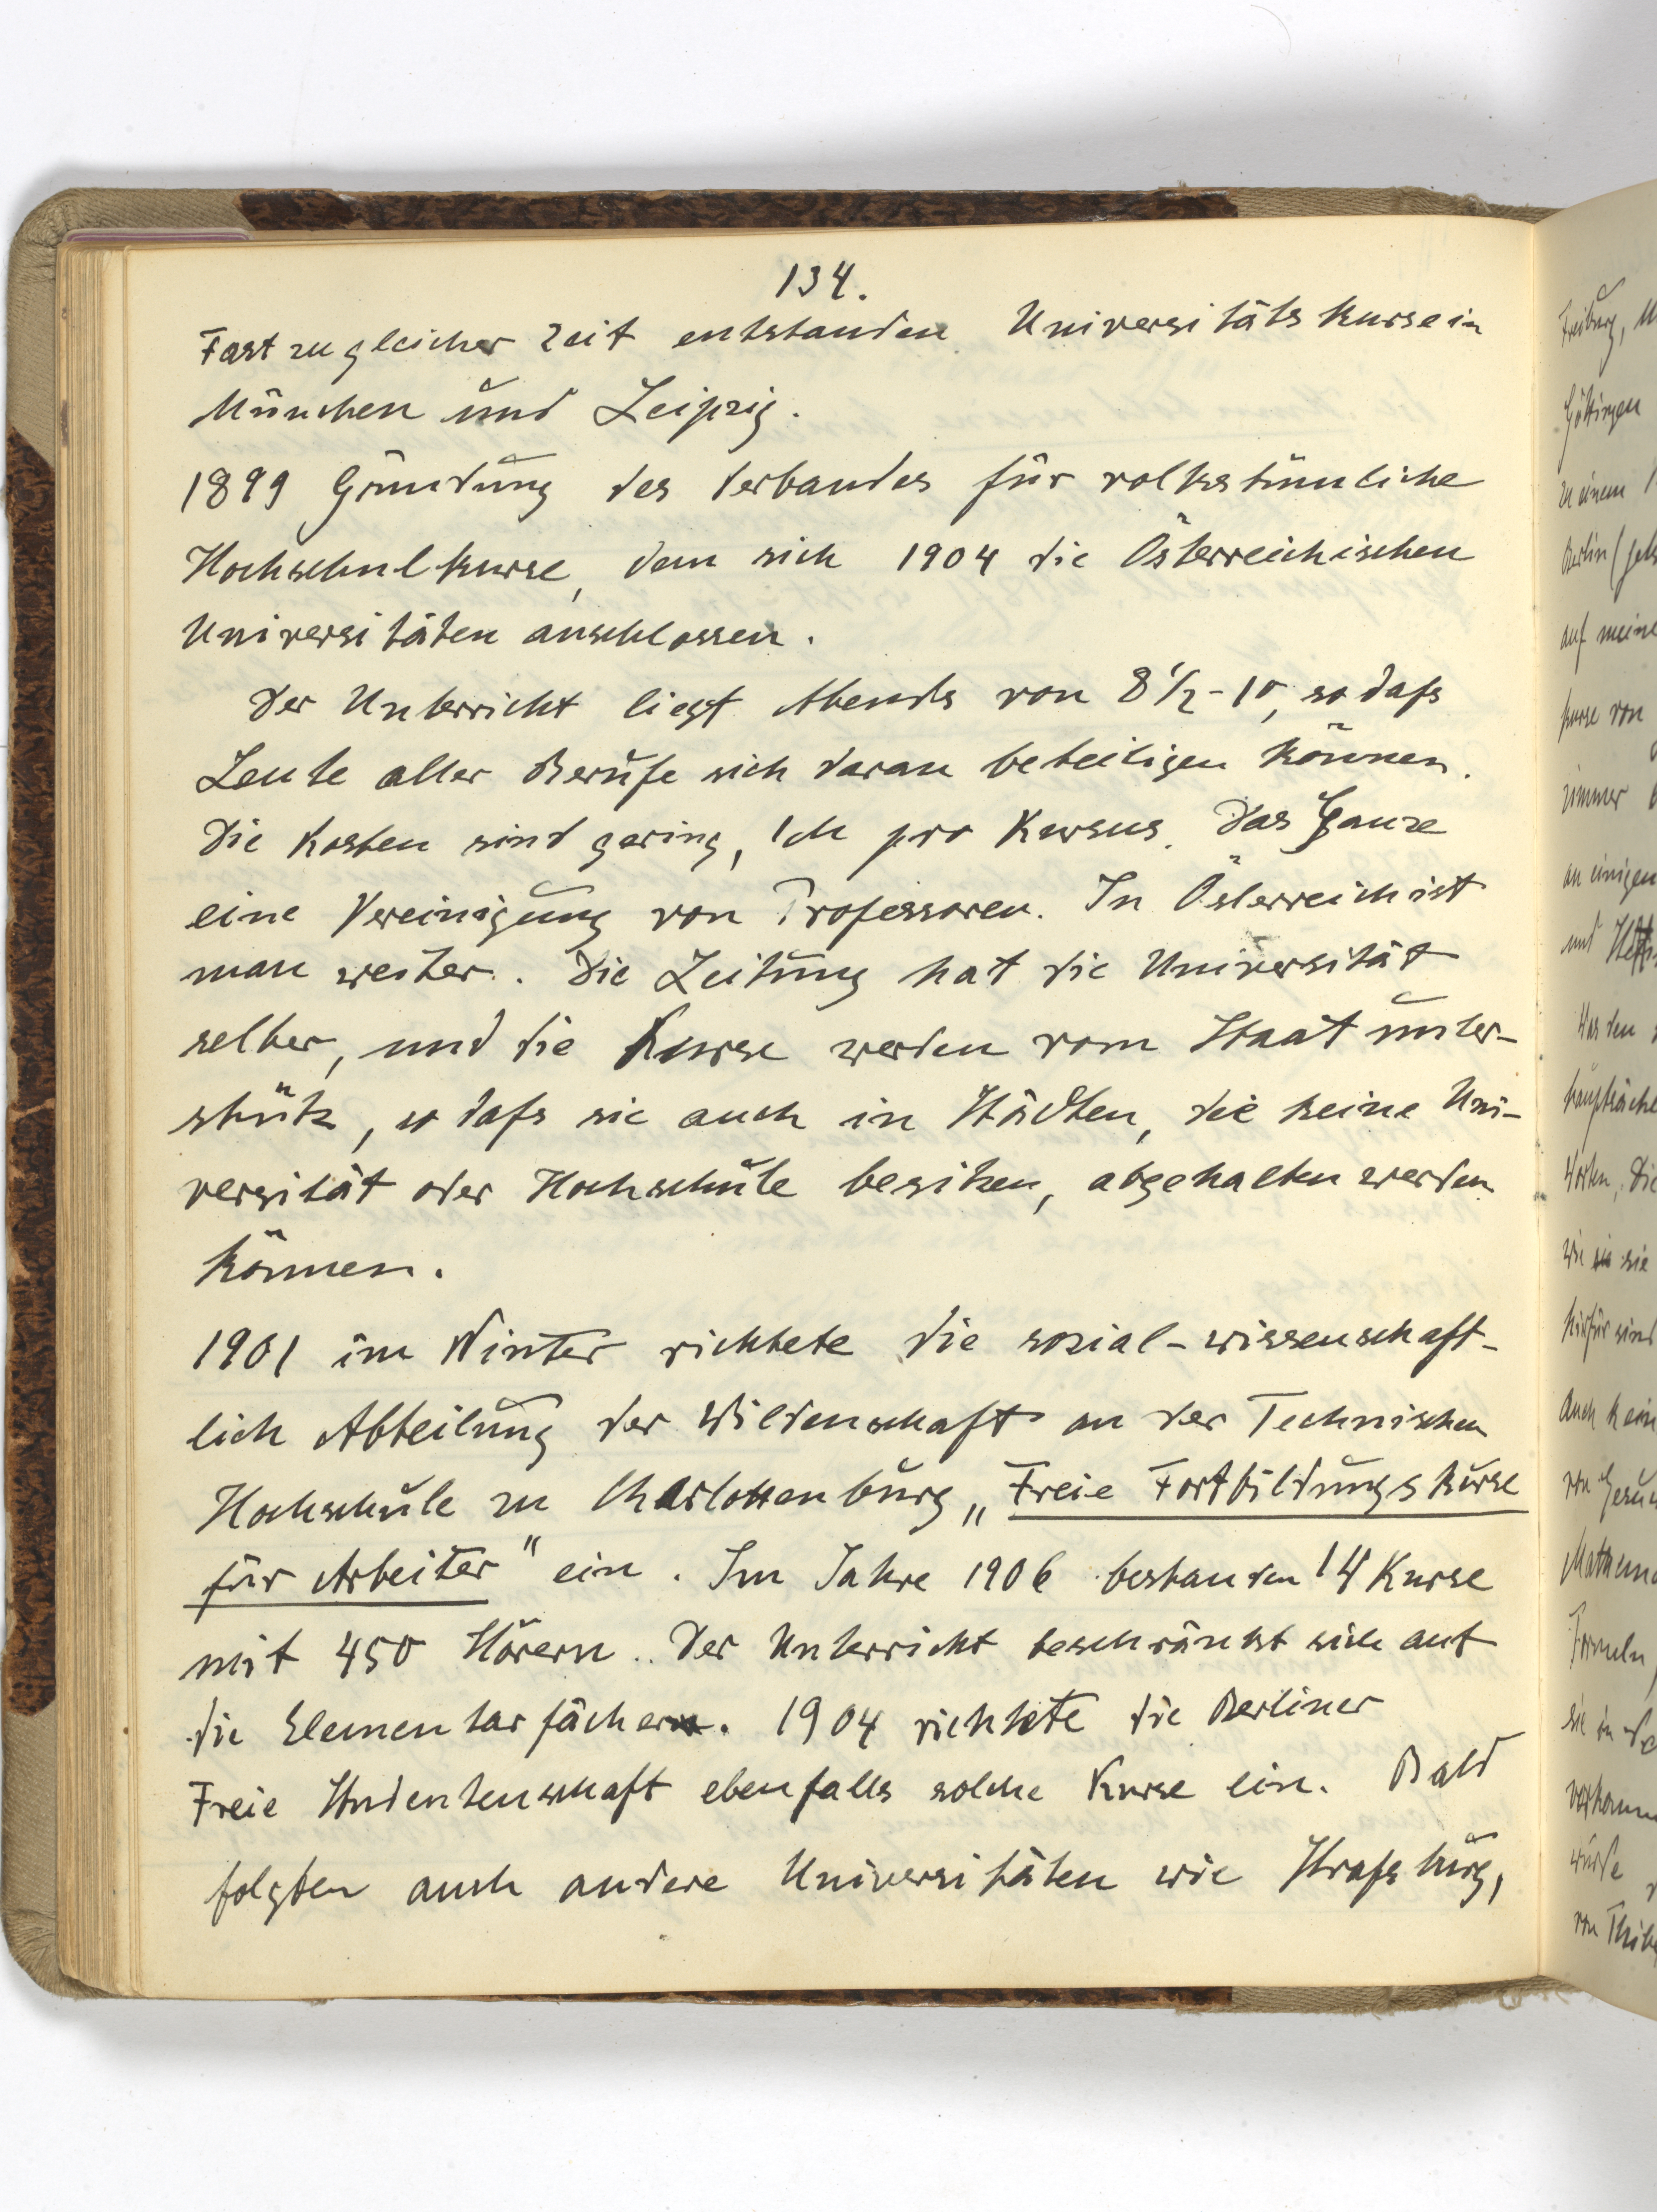 134.
Fast zu gleicher Zeit entstanden Universitätskurse in
München und Leipzig.
1899 Gründung des Verbandes für volkstümliche
Hochschulkurse, dem sich 1904 die Österreichischen
Universitäten anschlossen.
Der Unterricht liegt Abends von 8½-10, so daſs
Leute aller Berufe sich daran beteiligen können.
Die Kosten sind gering, 1 M pro Kursus. Das Ganze
eine Vereinigung von Professoren. In Österreich ist
man weiter. Die Leitung hat die Universität
selber, und die Kurse werden vom Staat unter-
stütz, so daſs sie auch in Städten, die keine Uni-
versität oder Hochschule besitzen, abgehalten werden
können.
1901 im Winter richtete die sozial-wissenschaft-
lich Abteilung der Wildenschaft an der Technischen
Hochschule zu Charlottenburg „Freie Fortbildungskurse
für Arbeiter" ein. Im Jahre 1906 bestanden 14 Kurse
mit 450 Hörern. Der Unterricht beschränkt sich auf
die Elementarfächer. 1904 richtete die Berliner
Freie Studentenschaft ebenfalls solche Kurse ein. Bald
folgten auch andere Universitäten wie Straſsburg,
Freiburg,
Göttingen
zu einem
Berlin
auf meine
kurse von
zimmer
an einigen
und
Was den
hauptsäche
Worten, Die
wie sie
hierfür sind
Auch kein
von
Mathema
Formeln,
sie in
vorkomm
würde
von